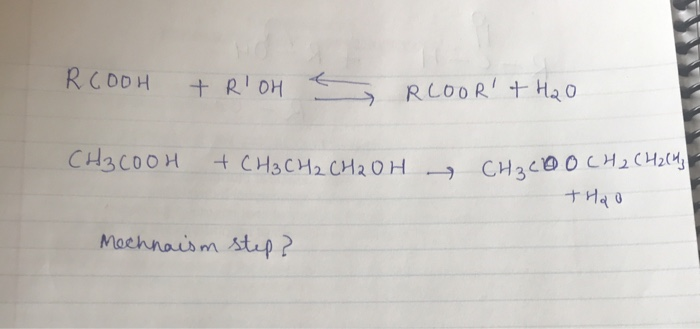 RCOOH + R'OH ⇌ RCOOR' + H2O
CH3COOH + CH3CH2CH2OH → CH3COOCH2CH2CH3
+ H2O
Mechnaism step?